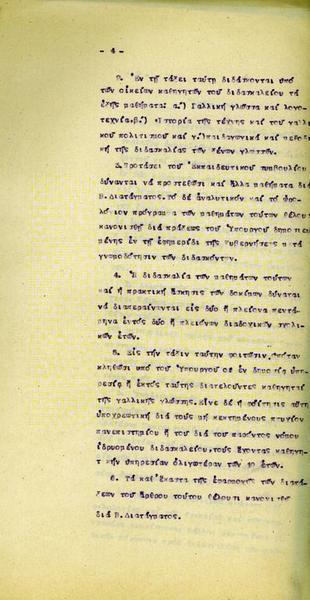 - 4 -
2. Ἐν τῇ τάξει ταύτῃ διδάσκονται ὑπό
τῶν οἰκείων καθηγητῶν τοῦ διδασκαλείου τά
ἑξῆς μαθήματα: α.) Γαλλική γλῶσσα καί λογο-
τεχνία.β.) Ἱστορία τῆς τέχνης καί τοῦ γαλλι
κοῦ πολιτισμοῦ καί γ.)παιδαγωγικά καί μεθοδι
κή τῆς διδασκαλίας τῶν ξένων γλωσσῶν.
3.Προτάσει τοῦ Ἐκπαιδευτικοῦ Συμβουλίου
δύνανται νά προστεθῶσι καί ἄλλα μαθήματα διά
Β.Διατάγματος.Τό δέ ἀναλυτικόν καί τό ὡρο-
λόγιον πρόγραμμα τῶν μαθημάτων τούτων θέλουσι
κανονισθῇ διά πράξεως τοῦ Ὑπουργοῦ δημοσιευο
μένης ἐν τῇ ἐφημερίδι τῆς κυβερνήσεως μετά
γνωμοδότησιν τῶν διδασκόντων.
4. Ἡ διδασκαλία τῶν μαθημάτων τούτων
καί ἡ πρακτική ἄσκησις τῶν δοκίμων δύναται
νά διαπεραίνωνται εἰς δύο ἤ πλείονα πεντά-
μηνα ἐντός δύο ἤ πλειόνων διαδοχικῶν σχολι-
κῶν ἐτῶν.
5. Εἰς τήν τάξιν ταύτην φοιτῶσιν,
κληθῶσι ὑπό τοῦ Ὑπουργοῦ οἱ ἐν δημοσίᾳ ὑπη-
ρεσίᾳ ἤ ἐκτός ταύτης διατελοῦντες καθηγηταί
τῆς γαλλικῆς γλώσσης. δέ ἡ φοίτησις αὕτη
ὑποχρεωτική διά τούς μή κεκτημένους πτυχίον
πανεπιστημίου ἤ τοῦ διά τοῦ παρόντος νόμου
ἱδρυομένου διδασκαλείου,τούς ἔχοντας καθηγη-
τικήν ὑπηρεσίαν ὀλιγωτέραν τῶν 10 ἐτῶν.
6. Τά καθ' ἕκαστα τῆς ἐφαρμογῆς τῶν διατά-
ξεων τοῦ ἄρθρου τούτου θέλουσι κανονισθῆ
διά Β.Διατάγματος.